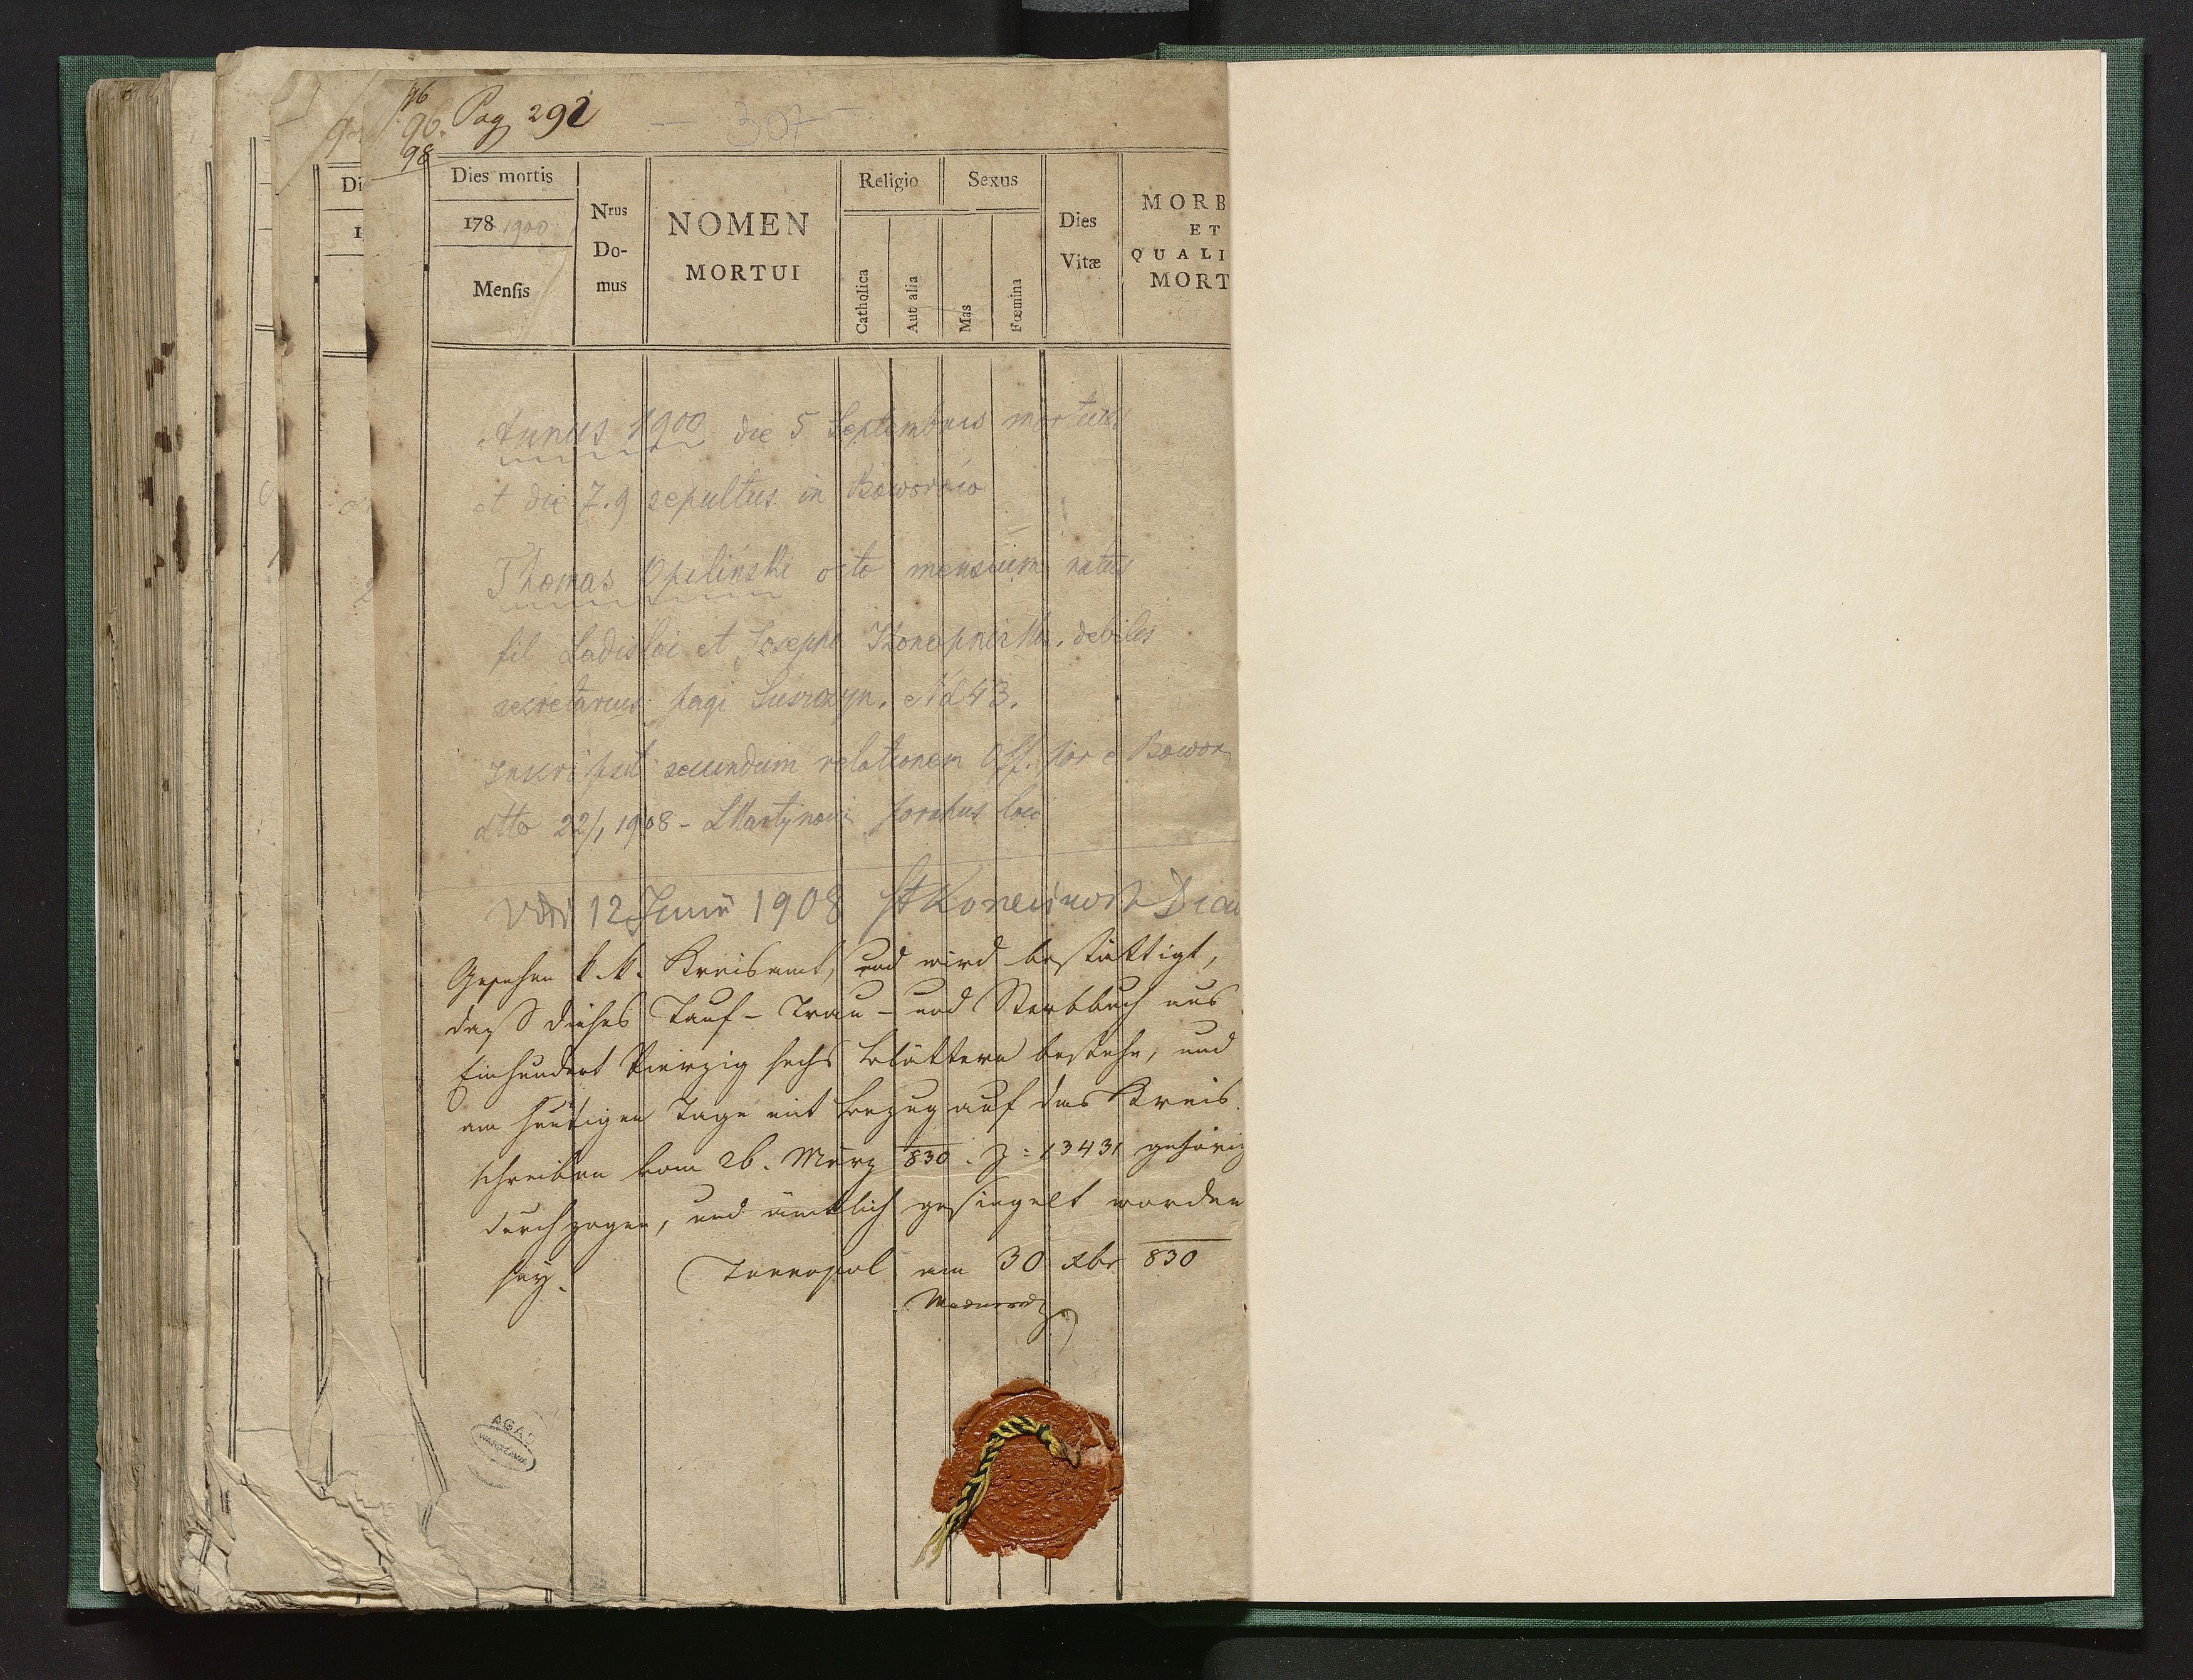 96
96. Pag 292
98
— 307 —
Dies mortis
178 1900
Menſis
Nrus
Do-
mus
NOMEN
MORTUI
Religio
Catholica
Aut alia
Sexus
Mas
Fœmina
Dies
Vitæ
MORB
ET
QUALI
MORT
Annus 1900 die 5 Septembris mortuus
et die 7.9 sepultus in Boworów
Thomas Opiliński octo mensium natus
fil Ladislai et Josepha debiles
secretarius pagi Nd 43.
Inscripsit secundum relationem Off. par e Bowor
dtto 22/1 1908 - parohus loci
Vidi 12 Junii 1908
Gesehen k. k. Kreisamt, und wird bestättigt,
daß dieses Tauf- Trau- und Sterbbuch aus
Einhundert Vierzig sechs Blättern bestehe, und
am heutigen Tage mit Bezug auf das Kreis
schreiben vom 26. März 830. Z: 13431 gehörig
durchzogen, und ämtlich gesiegelt worden
sey.
Tarnopol am 30 Xbr 830
AGAD
WARSZAWA